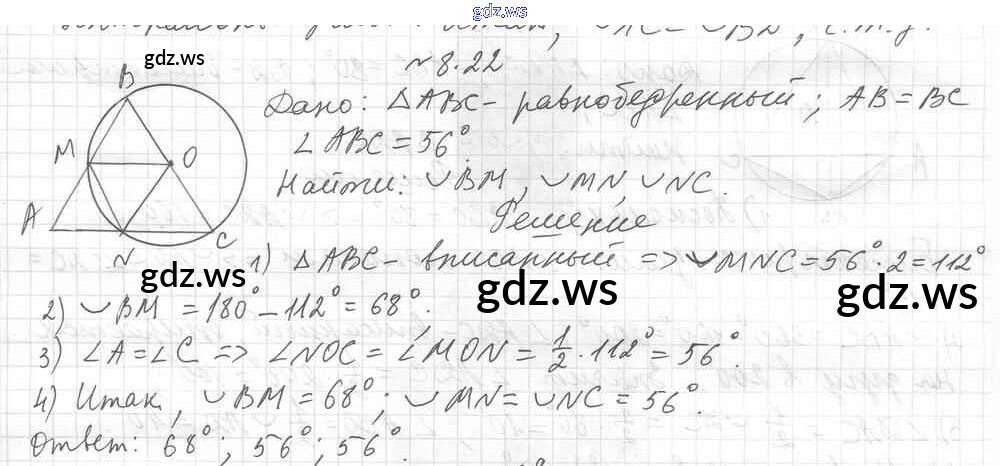 gdz.ws
◡AC = ◡BD, ч.т.д.
gdz.ws
№8.22
B
Дано: △ABC – равнобедренный; AB = BC
M
O
∠ABC = 56°.
Найти: ◡BM, ◡MN, ◡NC.
A
Решение
N
C
1) △ABC – вписанный => ◡MNC = 56°·2 = 112°
gdz.ws
gdz.ws
gdz.ws
2) ◡BM = 180° – 112° = 68°.
3) ∠A = ∠C => ∠NOC = ∠MON = 1/2 · 112° = 56°.
4) Итак, ◡BM = 68°; ◡MN = ◡NC = 56°.
gdz.ws
gdz.ws
Ответ: 68°; 56°; 56°.